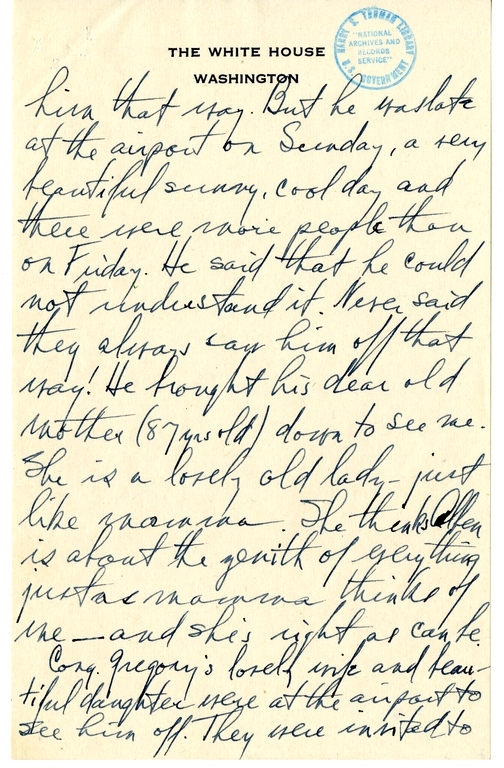 THE WHITE HOUSE
WASHINGTON
HARRY S. TRUMAN LIBRARY
"NATIONAL
ARCHIVES AND
RECORDS
SERVICE"
U.S. GOVERNMENT
him that way. But he was late
at the airport on Sunday, a very
beautiful sunny, cool day and
there were more people than
on Friday. He said that he could
not understand it. Never said
they always saw him off that
way! He brought his dear old
mother (87 yrs old) down to see me.
She is a lovely old lady - just
like mamma. She thinks Alben
is about the zenith of everything
just as mamma thinks of
me — and she's right as can be.
Cong. Gregory's lovely wife and beau-
tiful daughter were at the airport to
see him off. They were invited to